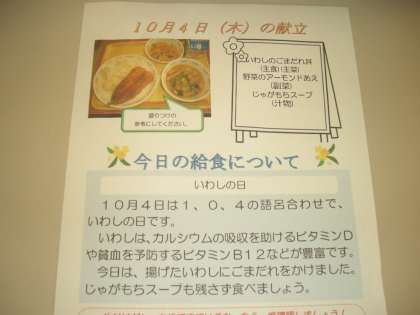 10月4日（木）の献立
いわしのごまだれ丼
（主食）（主菜）
野菜のアーモンドあえ
（副菜）
じゃがもちスープ
（汁物）
盛りつけの
参考にしてください。
今日の給食について
いわしの日
10月4日は1、0、4の語呂合わせで、
いわしの日です。
いわしは、カルシウムの吸収を助けるビタミンD
や貧血を予防するビタミンB12などが豊富です。
今日は、揚げたいわしにごまだれをかけました。
じゃがもちスープも残さず食べましょう。